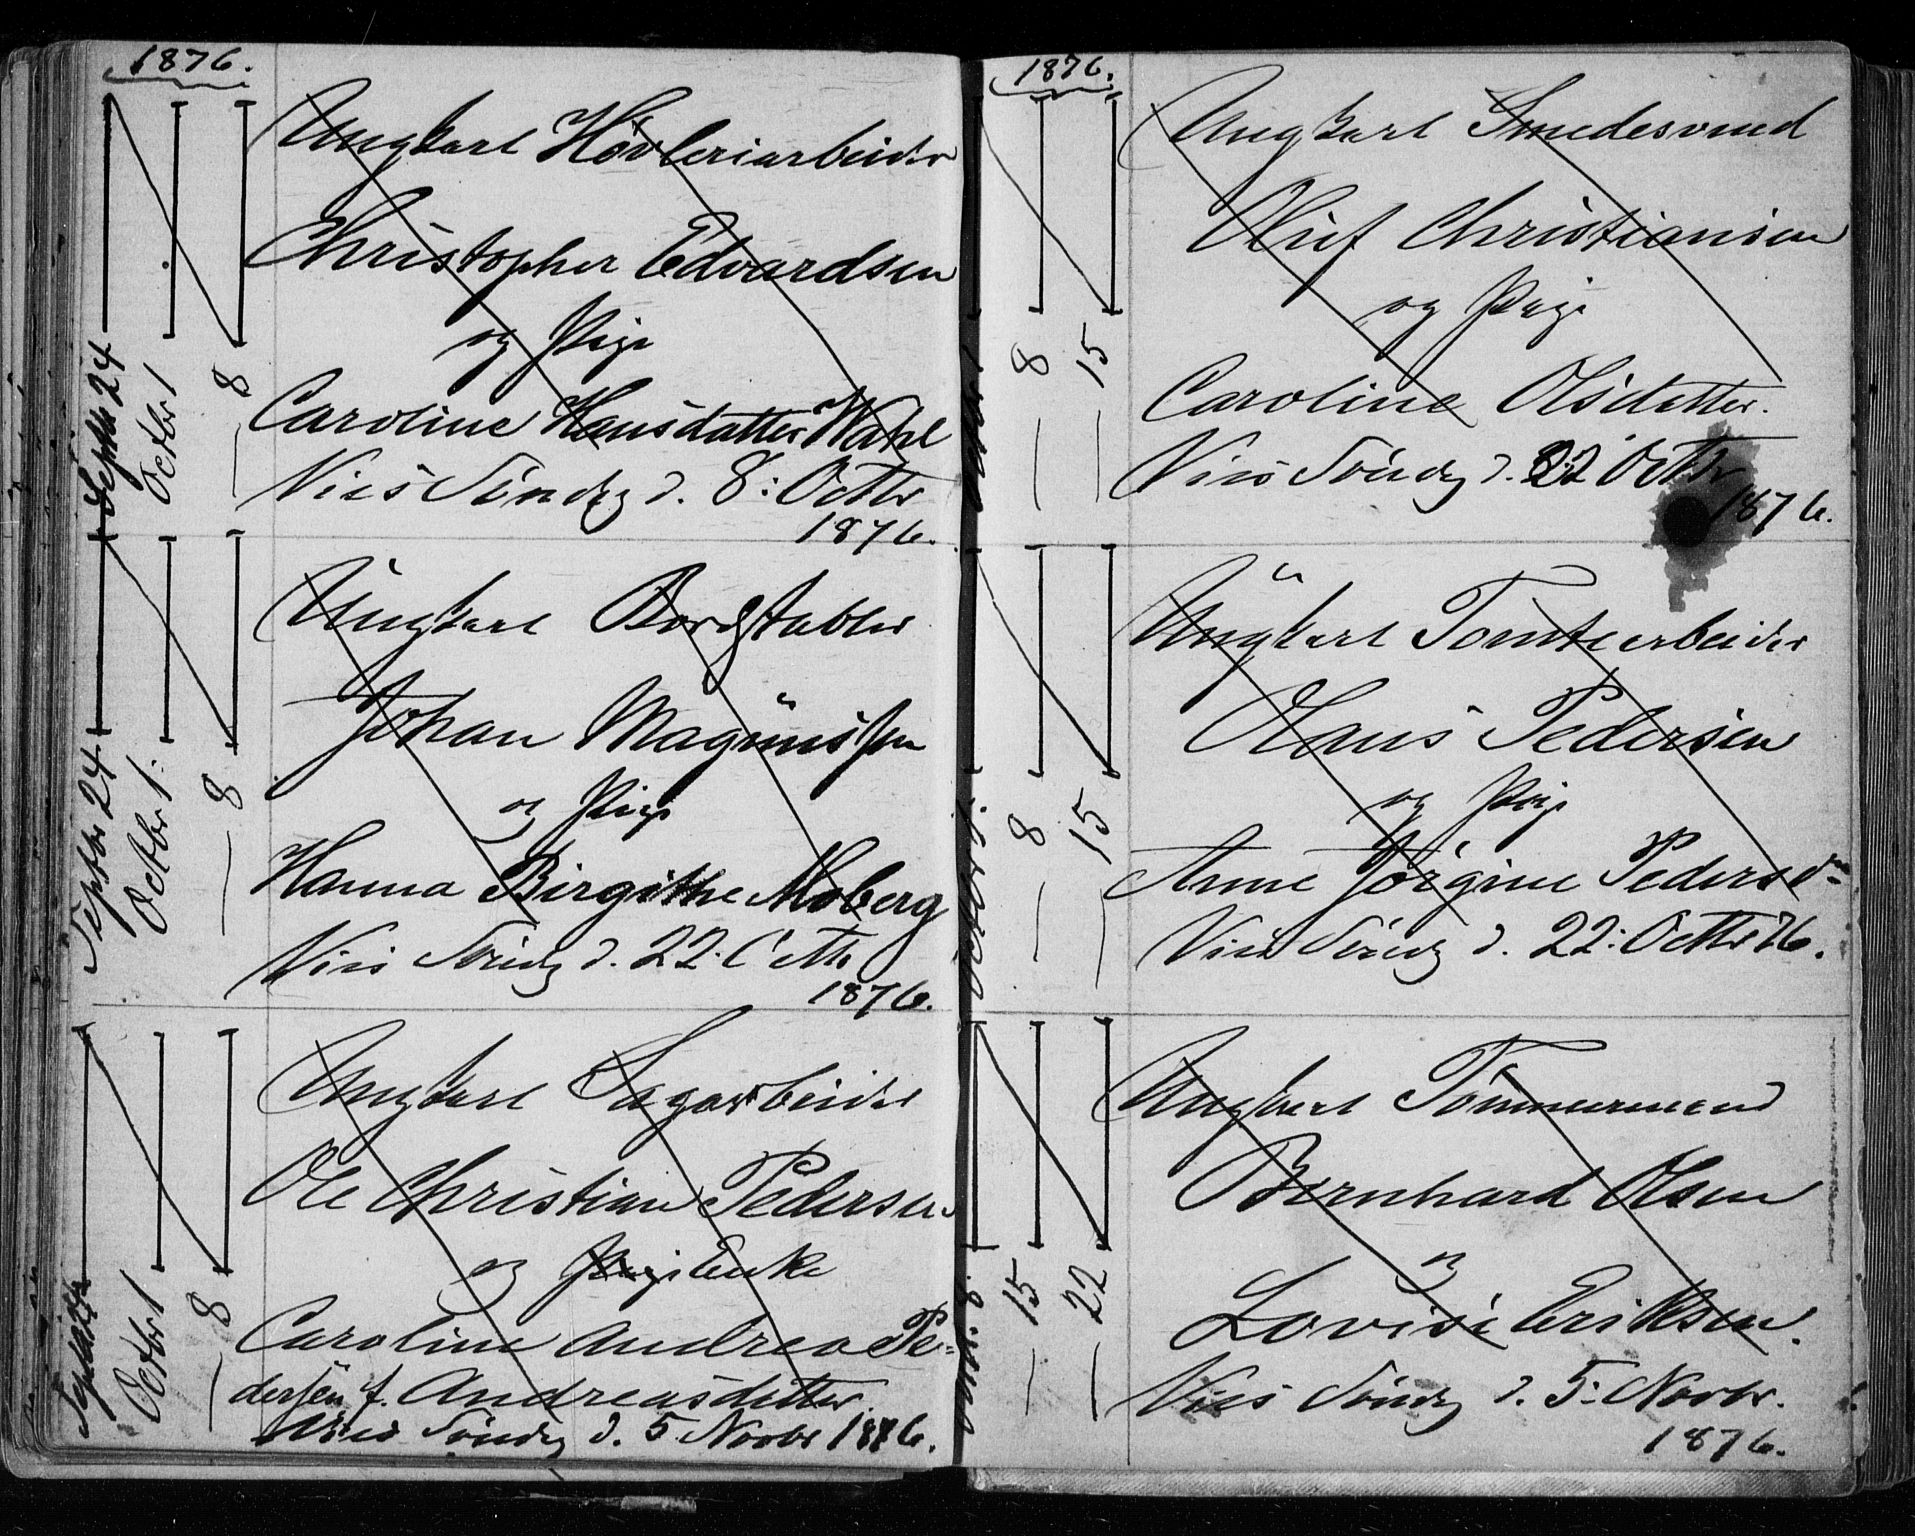 1876.
Septbr 24
Octbr 1
— 8
Ungkarl Høvleriarbeider
Christopher Edvardsen
og Pige
Caroline Hansdatter Wahl
Vies Søndg d. 8: Octbr
1876.
Septbr 24
Octbr 1:
— 8
Ungkarl Bordstabler
Johan Magnussen
og Pige
Hanna Birgithe Moberg
Vies Søndg d. 22. Octbr
1876.
Septbr 24
Octbr 1
— 8
Ungkarl Sagarbeider
Ole Christian Pedersen
og Pige Enke
Caroline Andrea Pe=
dersen f. Andreasdatter.
Vies Søndg d. 5 Novbr 1876.
1876.
— 8
— 15
Ungkarl Smedesvend
Oluf Christiansen
og Pige
Caroline Olsdatter.
Vies Søndg d. 22 Octbr
1876.
— 8
— 15
Ungkarl Tomtearbeider
Hans Pedersen
og Pige
Anne Jørgine Pedersdr
Vies Søndg d. 22: Octbr 76.
— 15
— 22
Ungkarl Tømmermand
Bernhard Olsen
og
Lovise Eriksen.
Vies Søndg d. 5: Novbr.
1876.